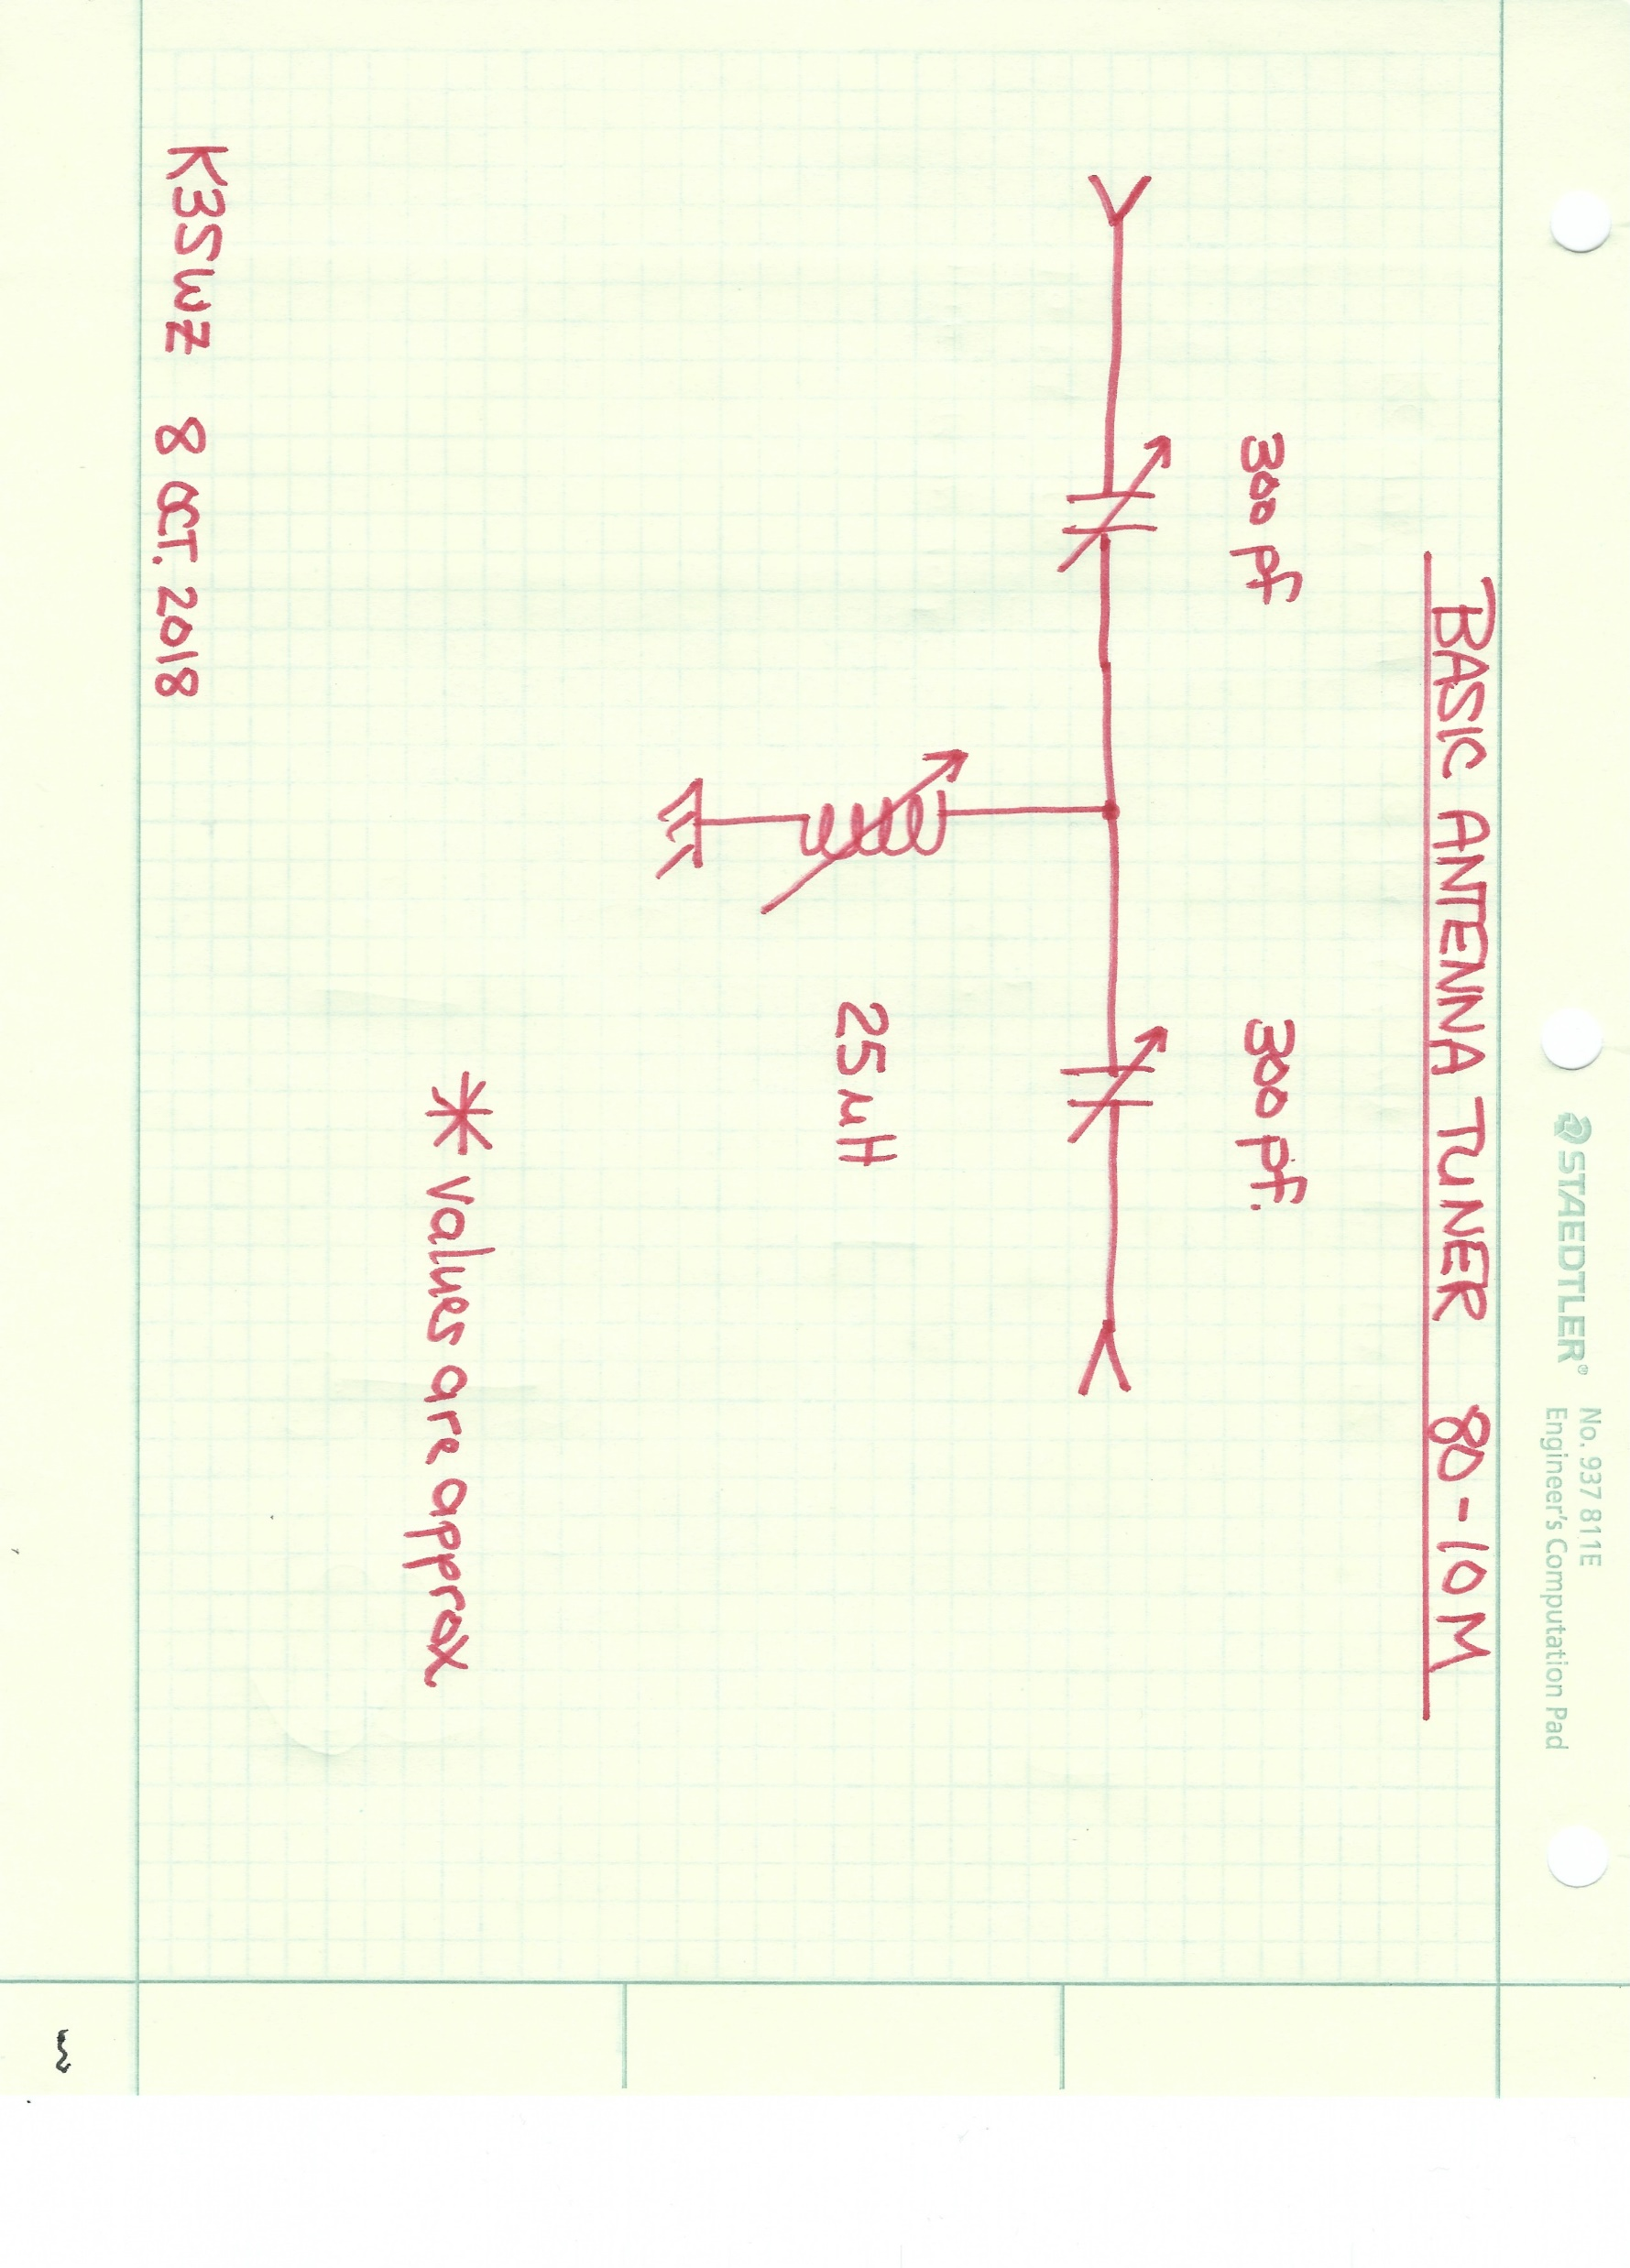 STAEDTLER®
No. 937 811E
Engineer's Computation Pad
BASIC ANTENNA TUNER 80-10M
300 pf
300 pf.
25 μH
* values are approx
K3SWZ 8 OCT. 2018